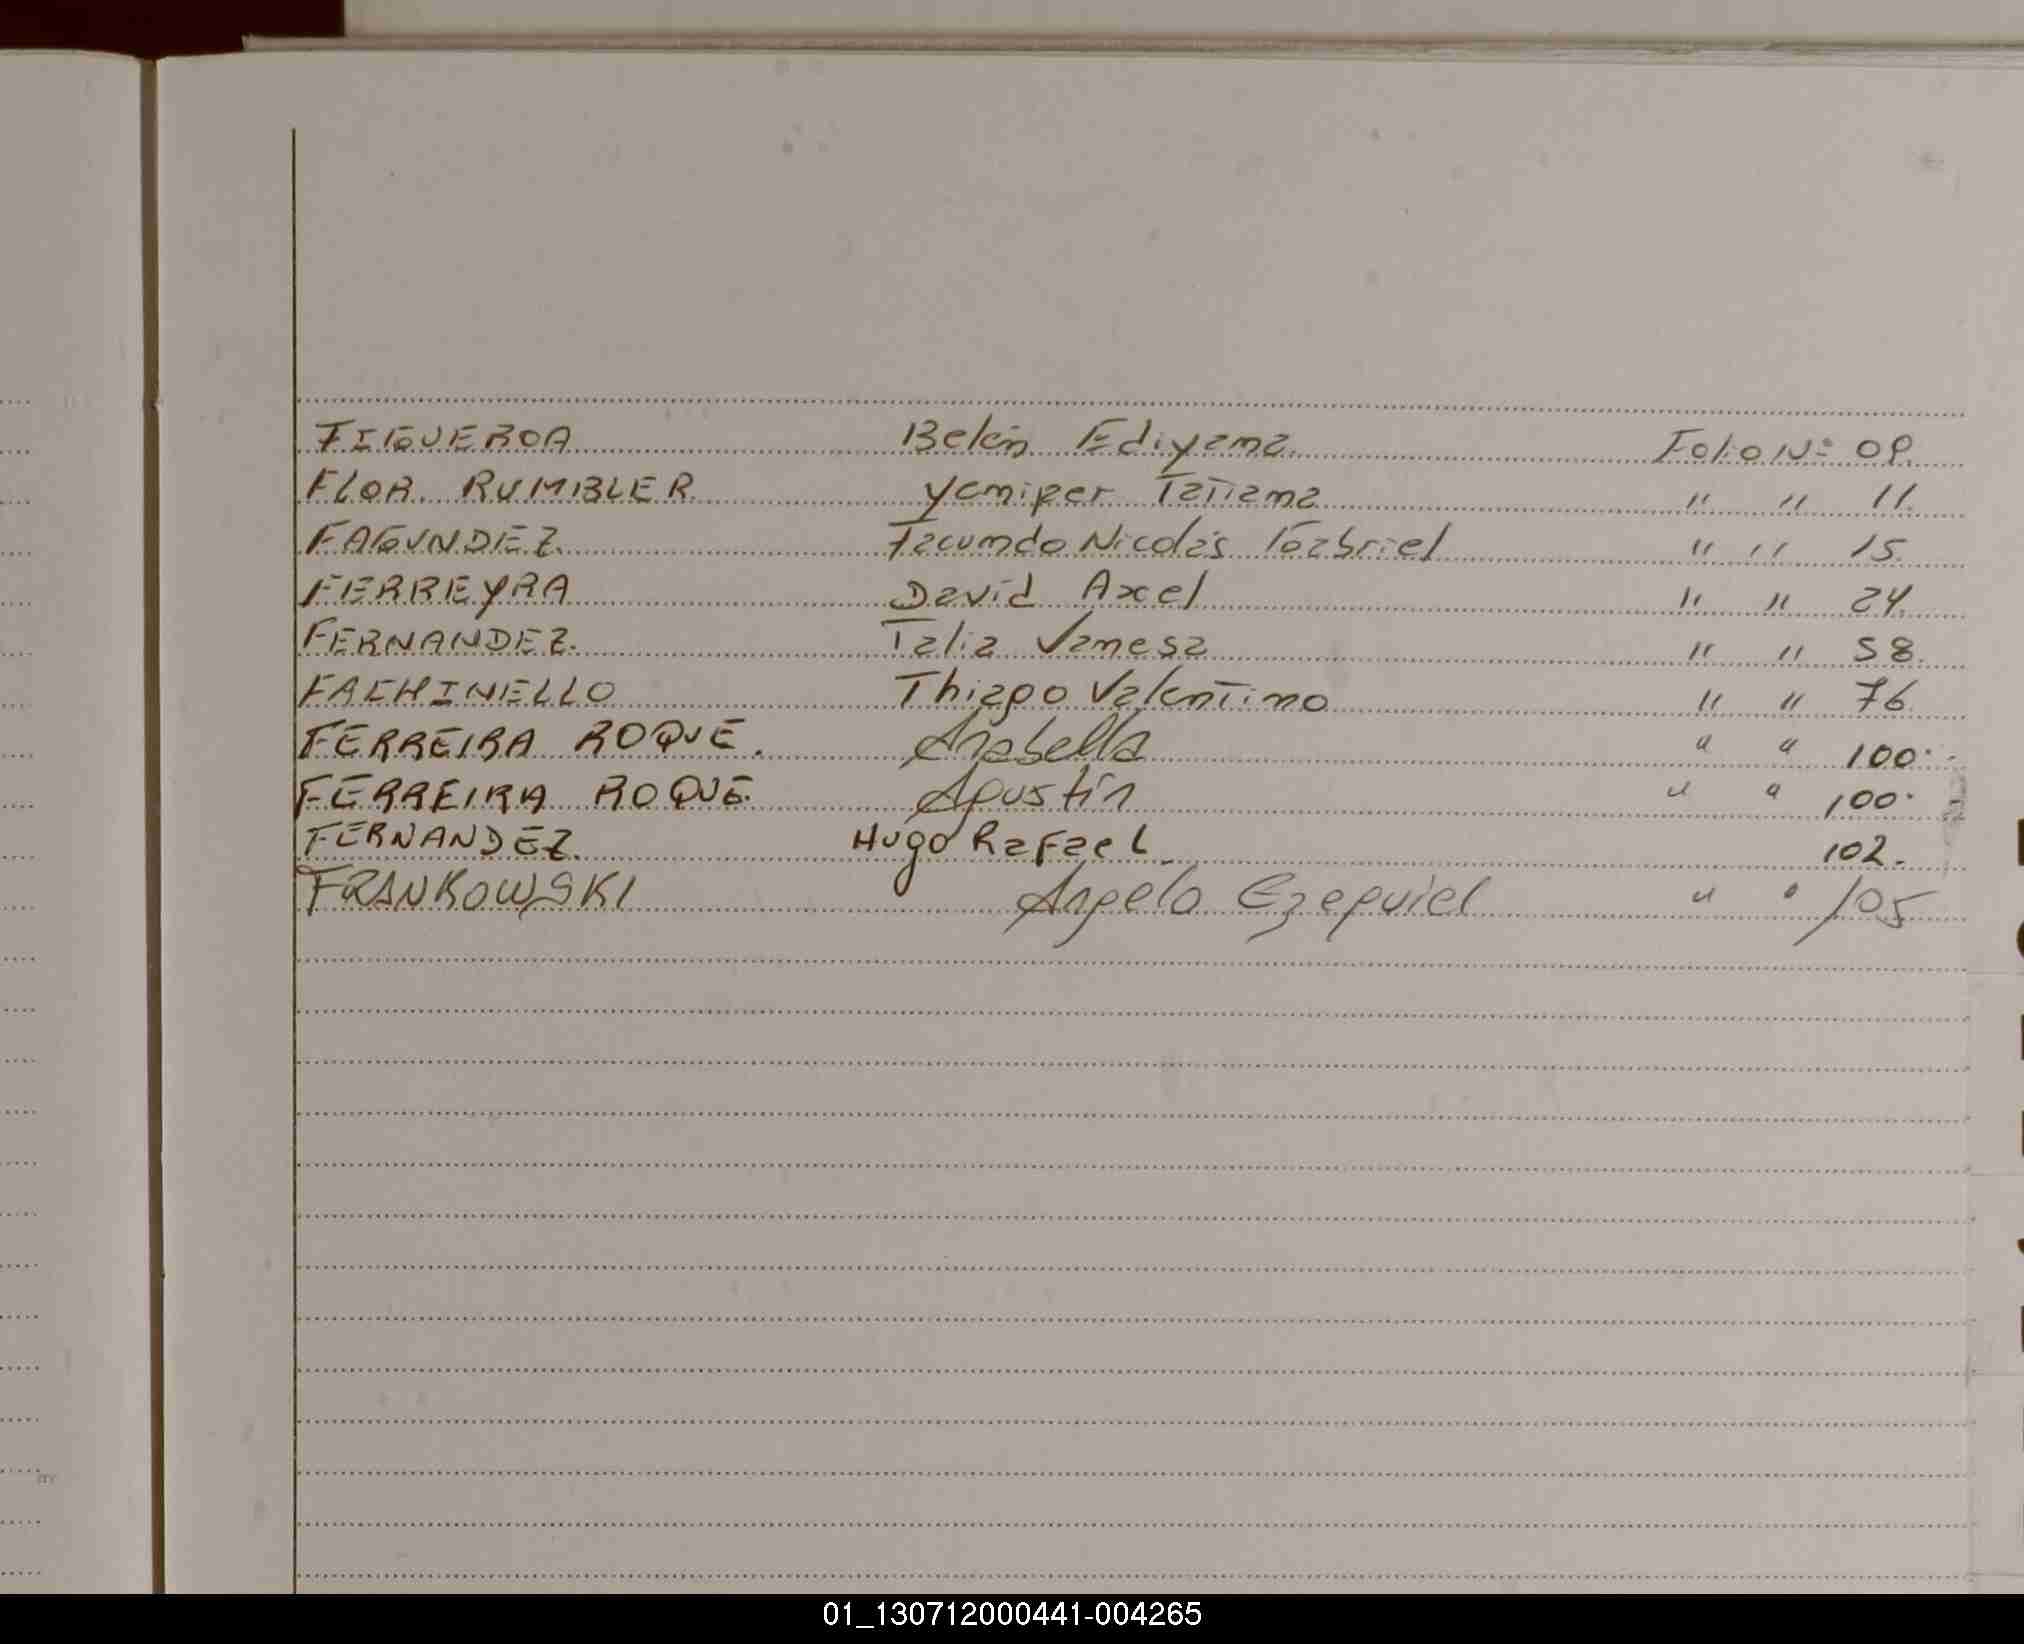 FIGUEROA Belén Ediyana Folio Nº 09
FLOR RUMBLER Yeniper Tatiana " " 11
FAGUNDEZ Facundo Nicolás Gabriel " " 15
FERREYRA David Axel " " 24
FERNANDEZ Talia Vanesa " " 58
FACHINELLO Thiago Valentino " " 76
FERREIRA ROQUE. Anabella " " 100.-
FERREIRA ROQUE. Agustín " " 100.
FERNANDEZ. Hugo Rafael 102.
FRANKOWSKI Angelo Ezequiel " " 105
01_130712000441-004265